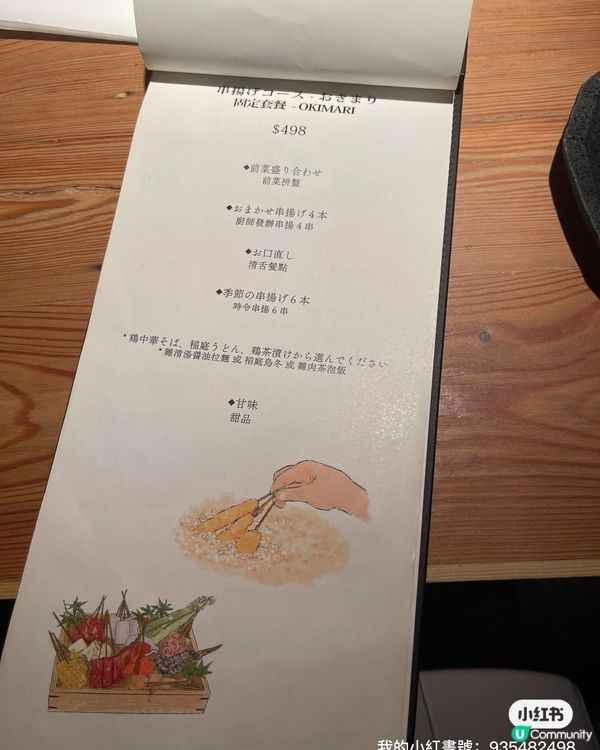 串揚げコース - おきまり
固定套餐 - OKIMARI
$498
◆前菜盛り合わせ
前菜拼盤
◆おまかせ串揚げ4本
廚師發辦串揚4串
◆お口直し
清舌餐點
◆季節の串揚げ6本
時令串揚6串
*鶏中華そば、稲庭うどん、鶏茶漬けから選んでください
*雞清湯醤油拉麵 或 稻庭烏冬 或 雞肉茶泡飯
◆甘味
甜品
小红书
U Community
我的小紅書號：935482498